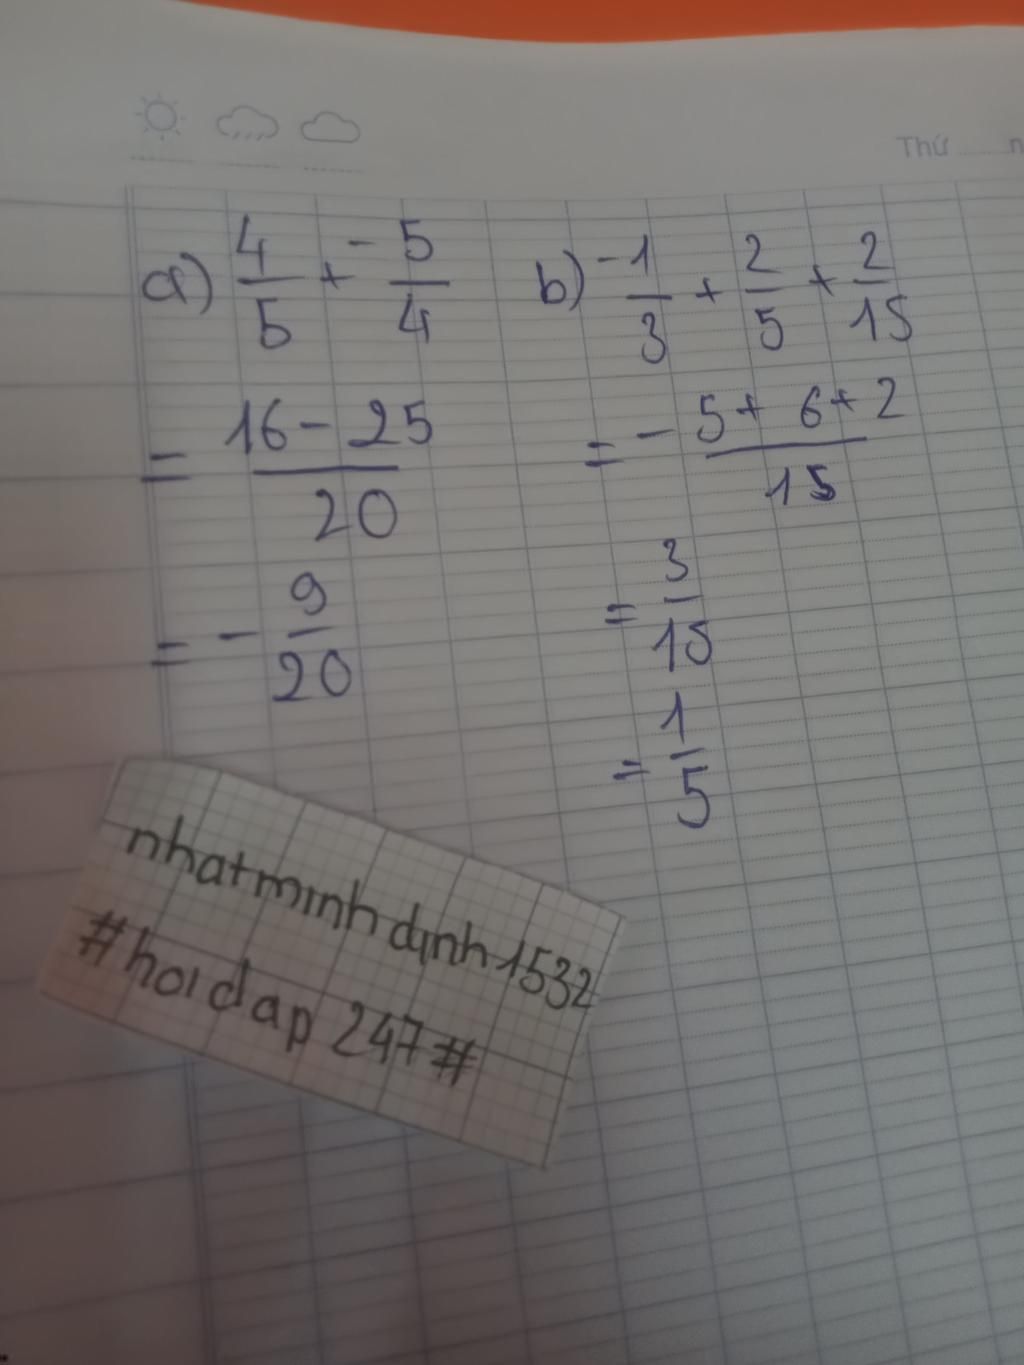 Thứ
a) 4/5 + -5/4
= 16 - 25 / 20
= - 9/20
b) -1/3 + 2/5 + 2/15
= -5 + 6 + 2 / 15
= 3/15
= 1/5
nhatminhdinh1532
#hoidap247#